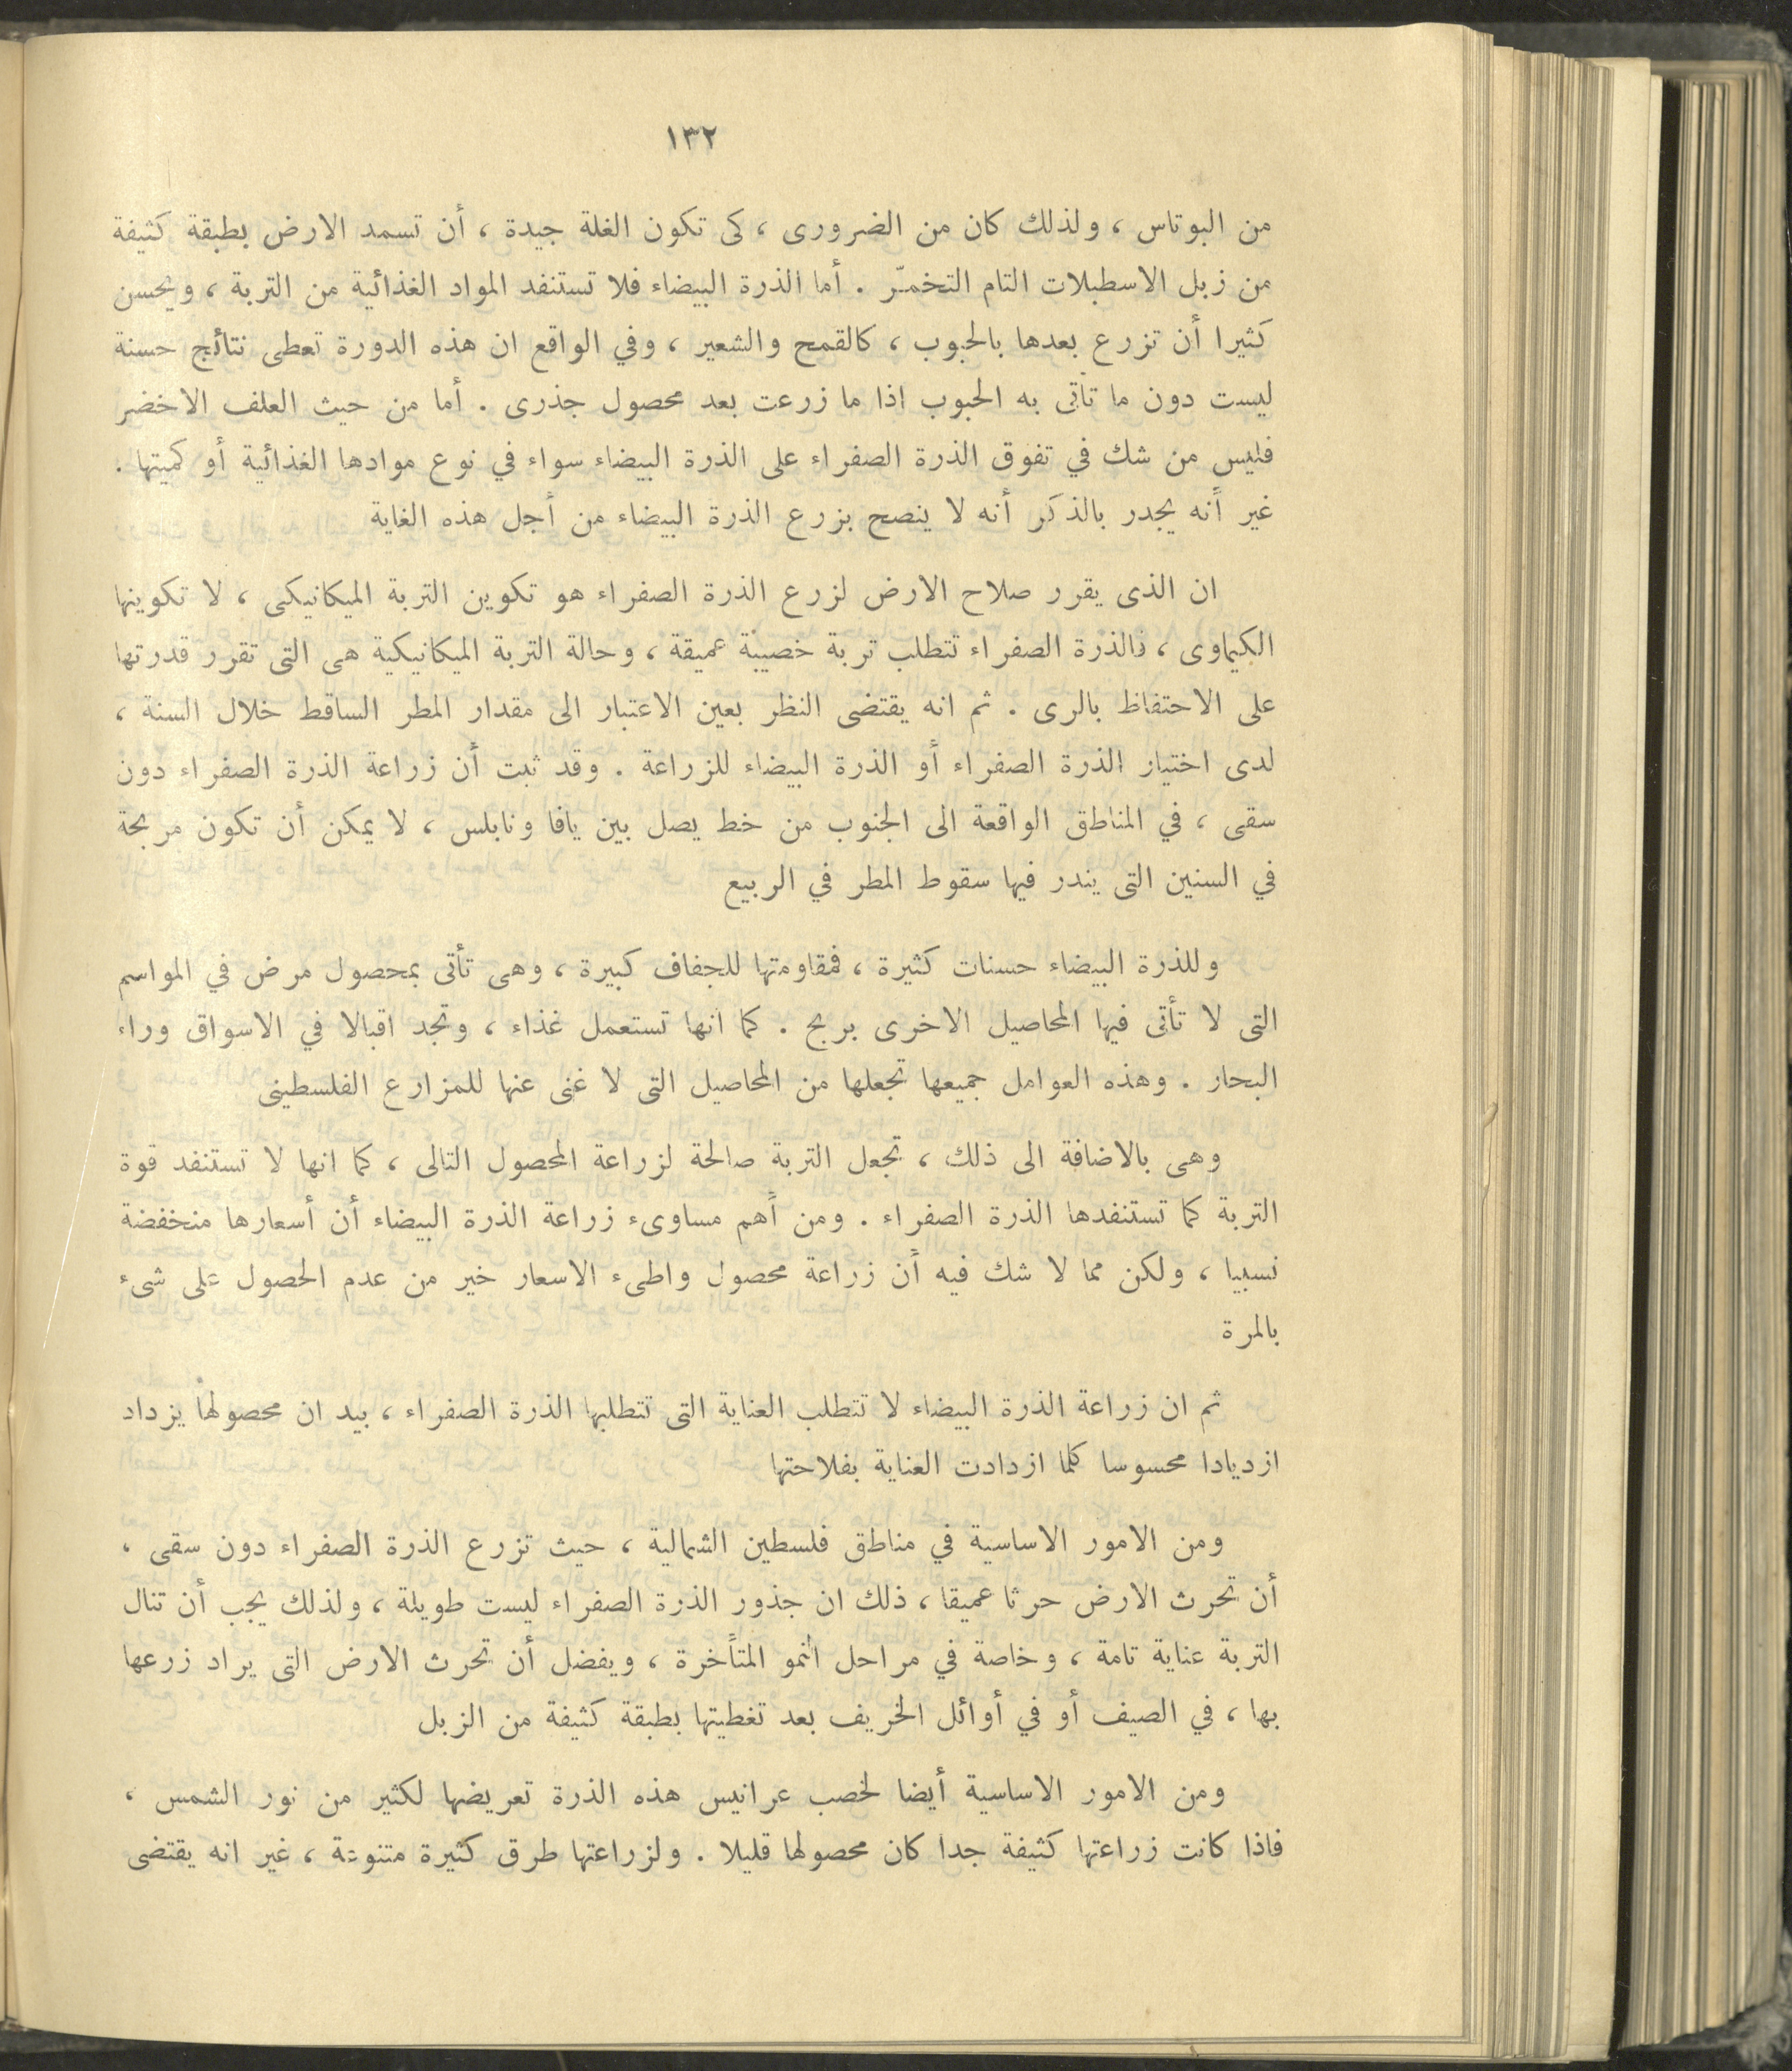 ١٣٢
من البوتاس ، ولذلك كان من الضرورى ، كى تكون الغلة جيدة ، أن تسمد الارض بطبقة كثيفة
من زبل الاسطبلات التام التخمـّر . أما الذرة البيضاء فلا تستنفد المواد الغذائية من التربة ، ويحسن
كثيرا أن تزرع بعدها بالحبوب ، كالقمح والشعير ، وفي الواقع ان هذه الدورة تعطى نتائج حسنة
ليست دون ما تأتى به الحبوب اذا ما زرعت بعد محصول جذرى . أما من حيث العلف الاخضر
فليس من شك في تفوق الذرة الصفراء على الذرة البيضاء سواء في نوع موادها الغذائية أو كميتها .
غير أنه يجدر بالذكر أنه لا ينصح بزرع الذرة البيضاء من أجل هذه الغاية
ان الذى يقرر صلاح الارض لزرع الذرة الصفراء هو تكوين التربة الميكانيكى ، لا تكوينها
الكيماوى ، فالذرة الصفراء تتطلب تربة خصيبة عميقة ، وحالة التربة الميكانيكية هى التى تقرر قدرتها
على الاحتفاظ بالرى . ثم انه يقتضى النظر بعين الاعتبار الى مقدار المطر الساقط خلال السنة ،
لدى اختيار الذرة الصفراء أو الذرة البيضاء للزراعة . وقد ثبت أن زراعة الذرة الصفراء دون
سقى ، في المناطق الواقعة الى الجنوب من خط يصل بين يافا ونابلس ، لا يمكن أن تكون مربحة
في السنين التى يندر فيها سقوط المطر في الربيع
وللذرة البيضاء حسنات كثيرة ، فمقاومتها للجفاف كبيرة ، وهى تأتى بمحصول مرض في المواسم
التى لا تأتى فيها المحاصيل الاخرى بربح . كما انها تستعمل غذاء ، وتجد اقبالا في الاسواق وراء
البحار . وهذه العوامل جميعها تجعلها من المحاصيل التى لا غنى عنها للمزارع الفلسطينى
وهى بالاضافة الى ذلك ، تجعل التربة صالحة لزراعة المحصول التالى ، كما انها لا تستنفد قوة
التربة كما تستنفدها الذرة الصفراء . ومن أهم مساوىء زراعة الذرة البيضاء أن أسعارها منخفضة
نسبيا ، ولكن مما لا شك فيه أن زراعة محصول واطىء الاسعار خير من عدم الحصول على شىء
بالمرة
ثم ان زراعة الذرة البيضاء لا تتطلب العناية التى تتطلبها الذرة الصفراء ، بيد ان محصولها يزداد
ازديادا محسوسا كلما ازدادت العناية بفلاحتها
ومن الامور الاساسية في مناطق فلسطين الشمالية ، حيث تزرع الذرة الصفراء دون سقى ،
أن تحرث الارض حرثا عميقا ، ذلك ان جذور الذرة الصفراء ليست طويلة ، ولذلك يجب أن تنال
التربة عناية تامة ، وخاصة في مراحل النمو المتأخرة ، ويفضل أن تحرث الارض التى يراد زرعها
بها ، في الصيف أو في أوائل الخريف بعد تغطيتها بطبقة كثيفة من الزبل
ومن الامور الاساسية أيضا لخصب عرانيس هذه الذرة تعريضها لكثير من نور الشمس ،
فاذا كانت زراعتها كثيفة جدا كان محصولها قليلا . ولزراعتها طرق كثيرة متنوعة ، غير انه يقتضى